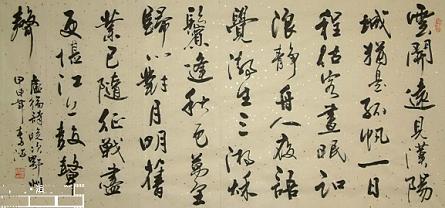 雲開遠見漢陽
城猶是孤帆一日
程估客晝眠知
浪靜舟人夜語
覺潮生三湘愁
鬢逢秋色萬里
歸心對月明舊
業已隨征戰盡
更堪江上鼓鼙
聲
盧綸詩晚次鄂州
甲申年李